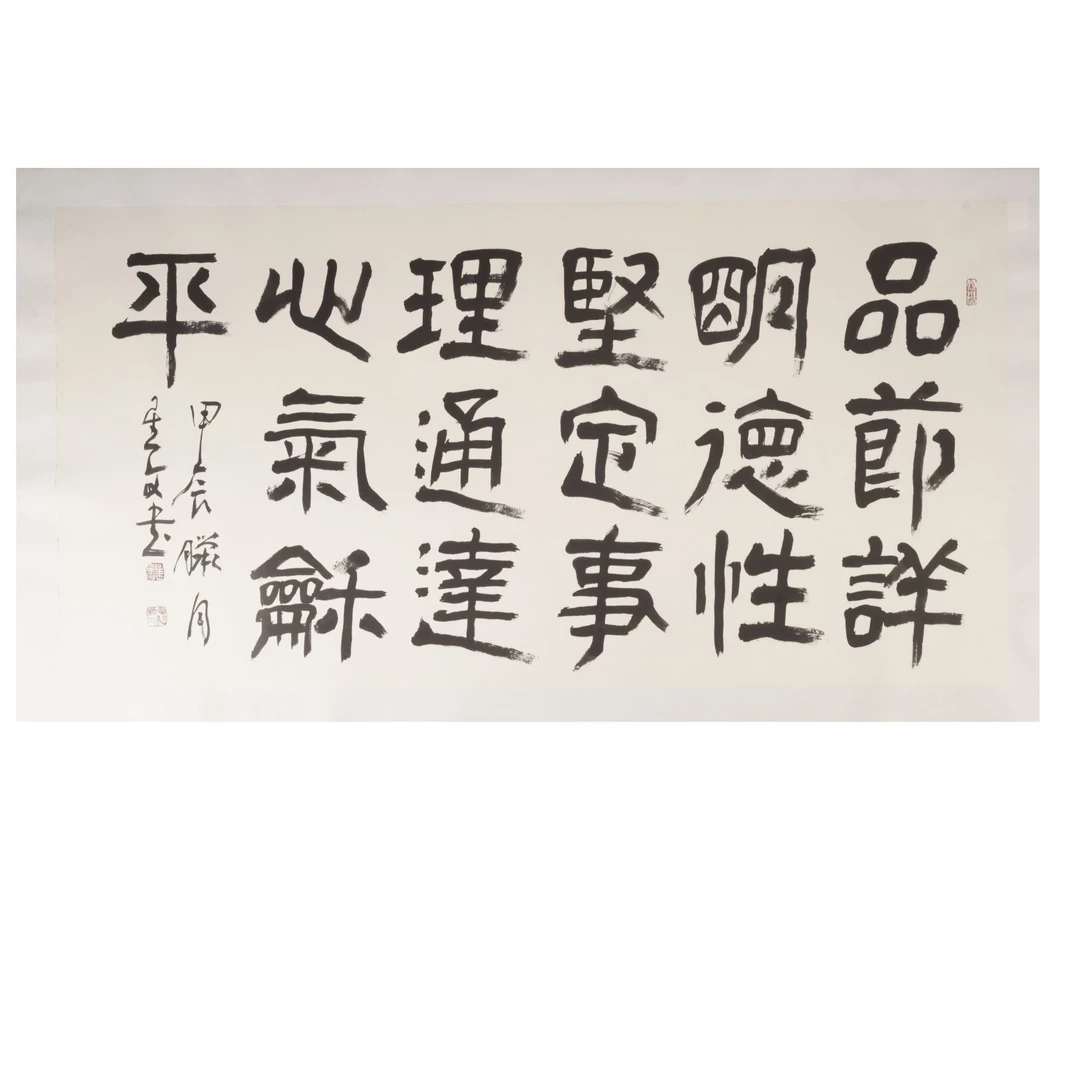 品節詳
明德性
堅定事
理通達
心氣龢
平
甲辰臘月